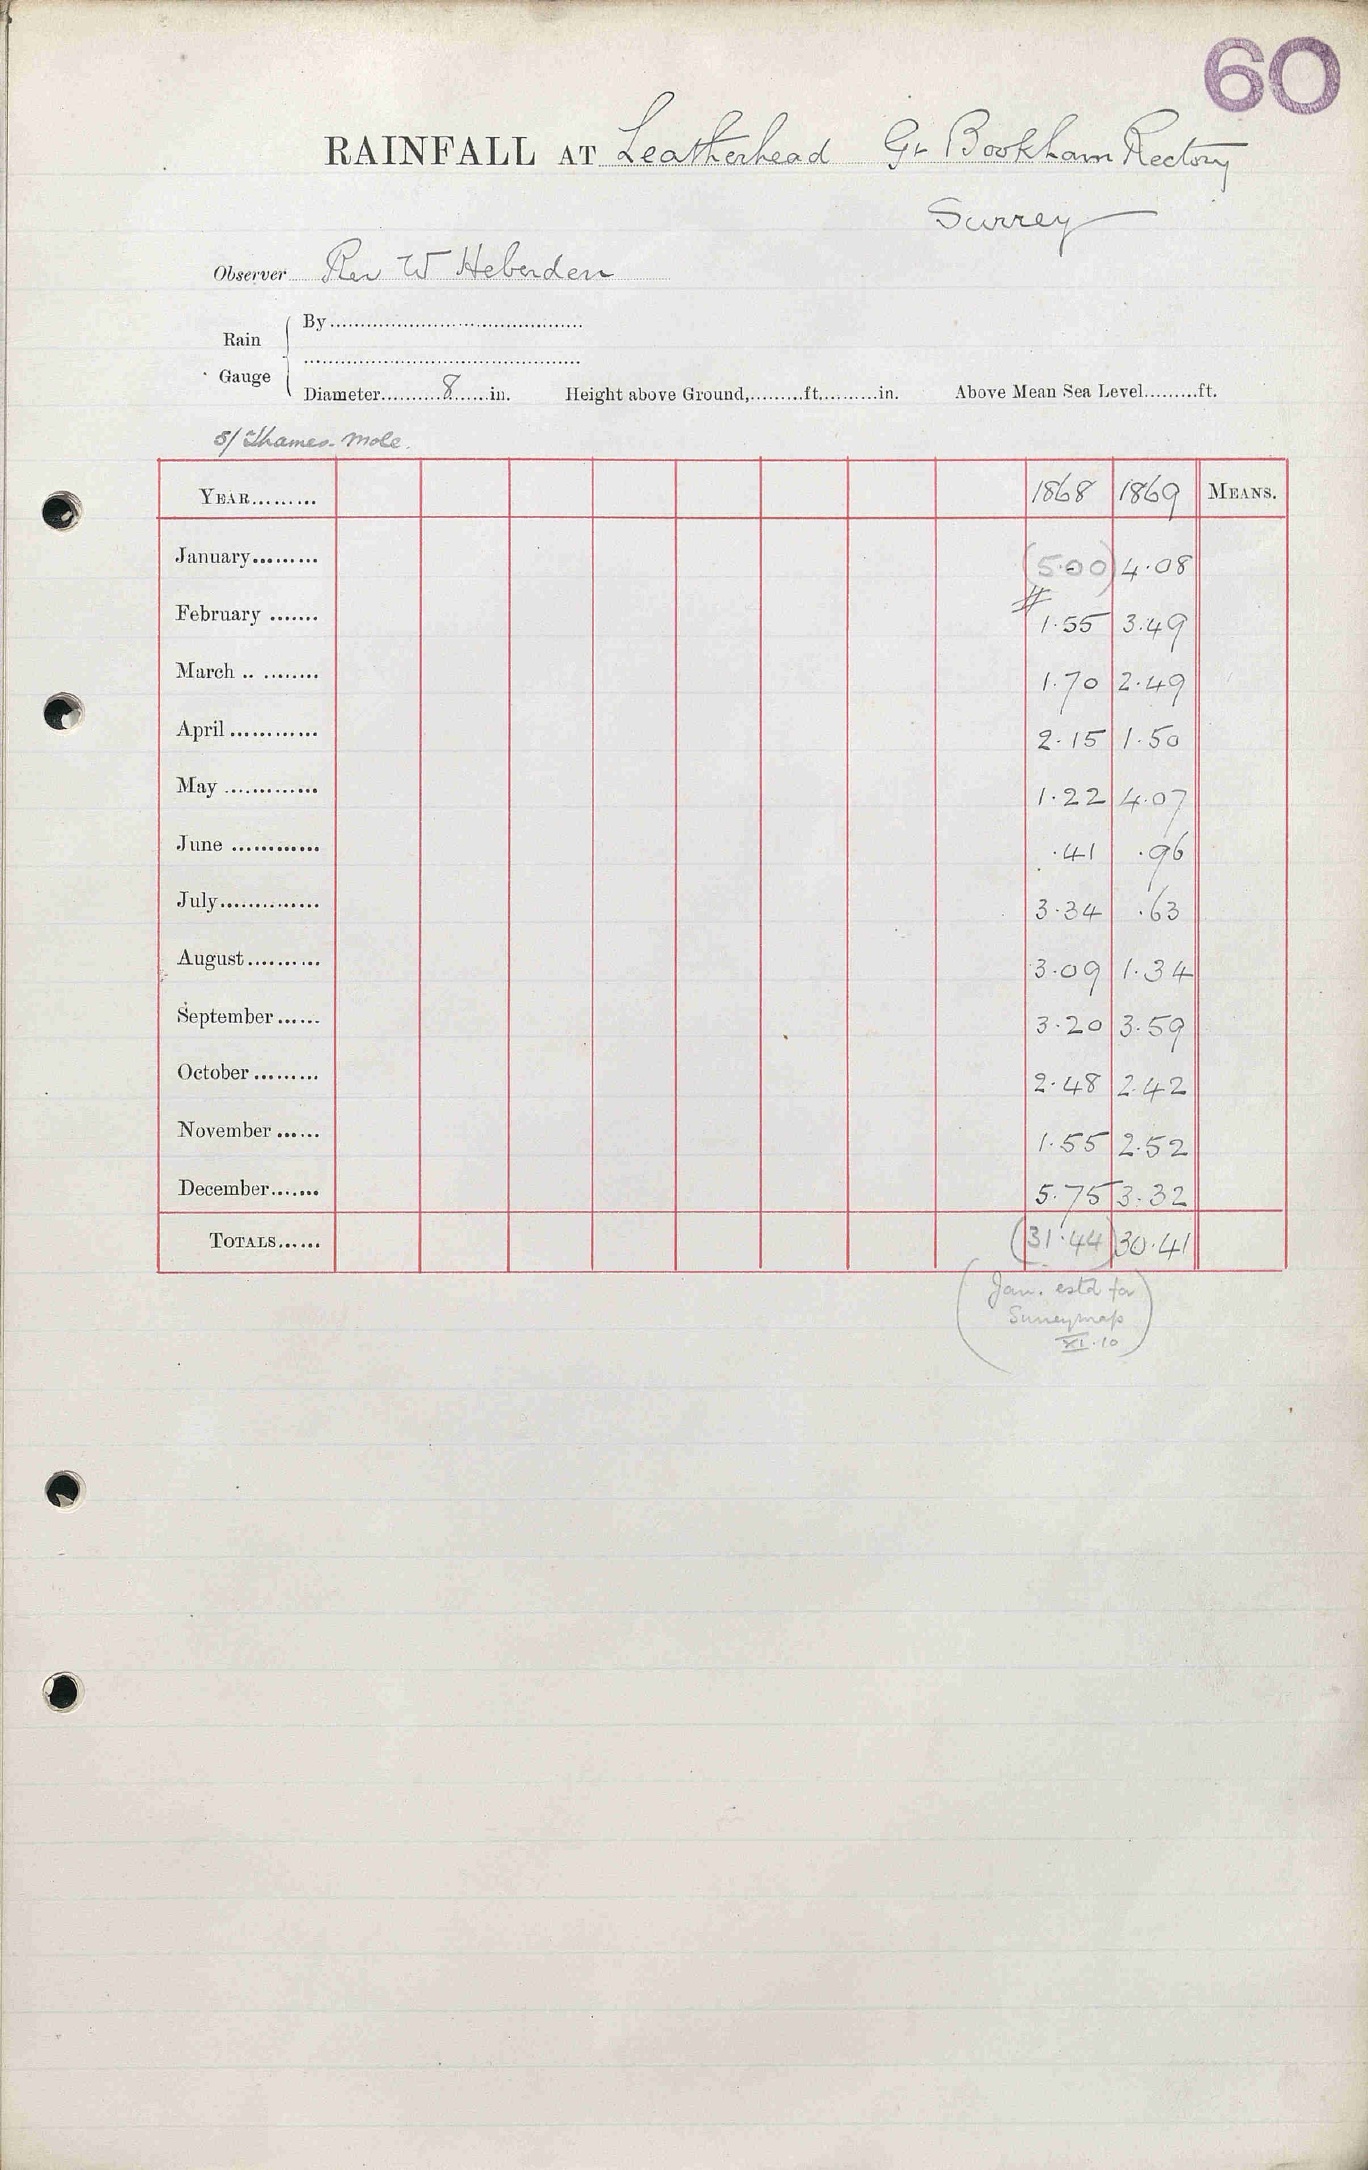 60
RAINFALL AT Leatherhead Gt Bookham Rectory
Surrey
Observer Rev W Heberden
Rain Gauge
By
Diameter 8 in. Height above Ground, ft. in. Above Mean Sea Level ft.
5/ Thames - Mole.
YEAR 1868 1869 MEANS.
January (5.00) 4.08
February # 1.55 3.49
March 1.70 2.49
April 2.15 1.50
May 1.22 4.07
June .41 .96
July 3.34 .63
August 3.09 1.34
September 3.20 3.59
October 2.48 2.42
November 1.55 2.52
December 5.75 3.32
TOTALS (31.44) 30.41
(Jan. estd for
Surrey map
XI.10)